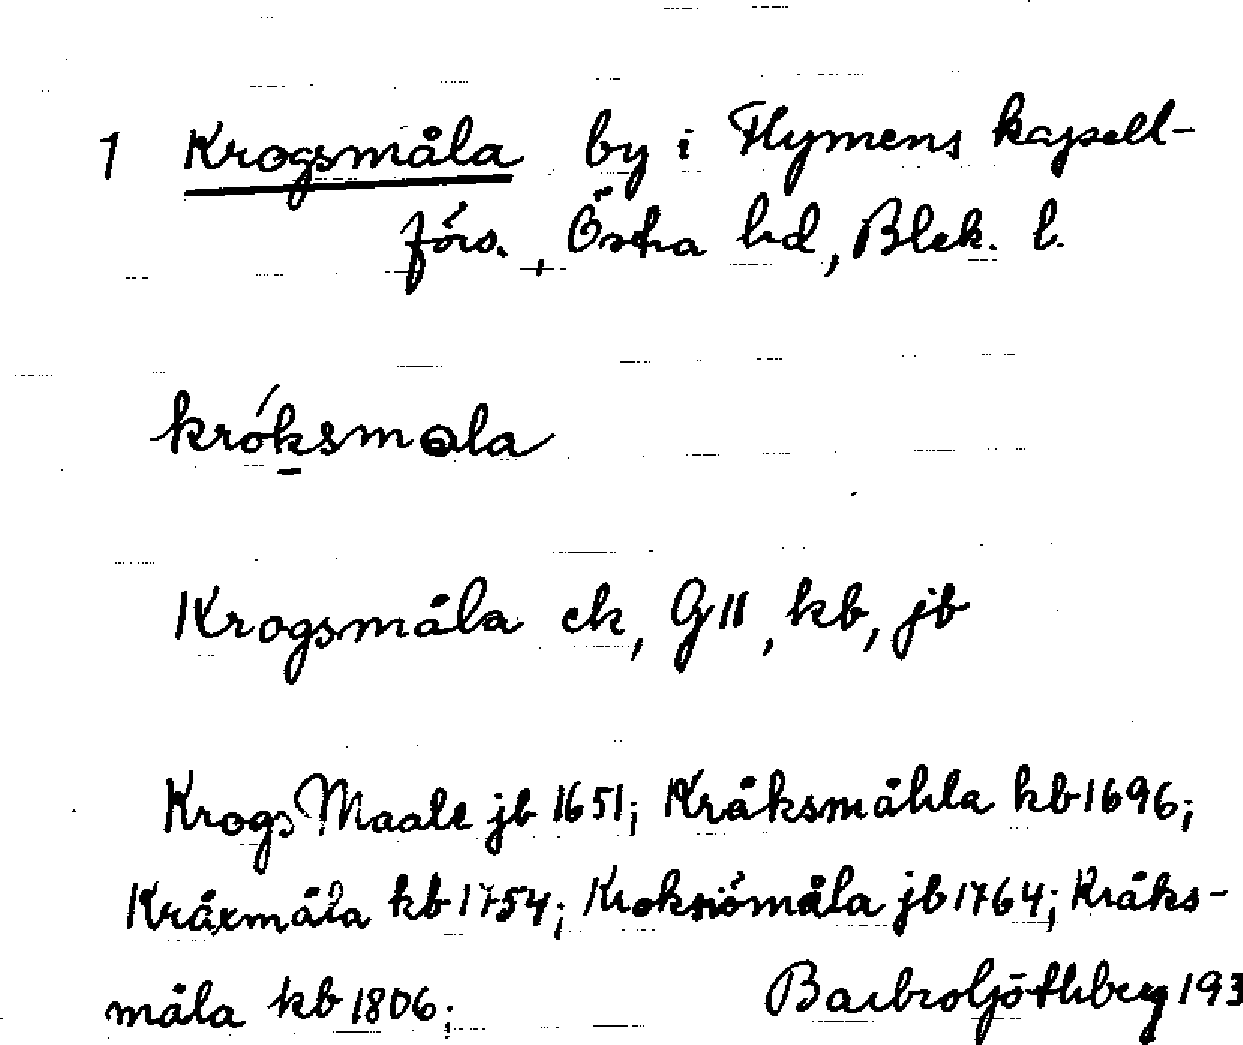 1 Krogsmåla by i Flymens kapell-
förs., Östra hd, Blek. l.
króksmåla
Krogsmåla ek, GII, kb, jb
Krogs Maale jb 1651; Kråksmåhla kb 1696;
Kråxmåla kb 1754; Kroksiömåla jb 1764; Kråks-
måla kb 1806;
Barbro Göthberg 193